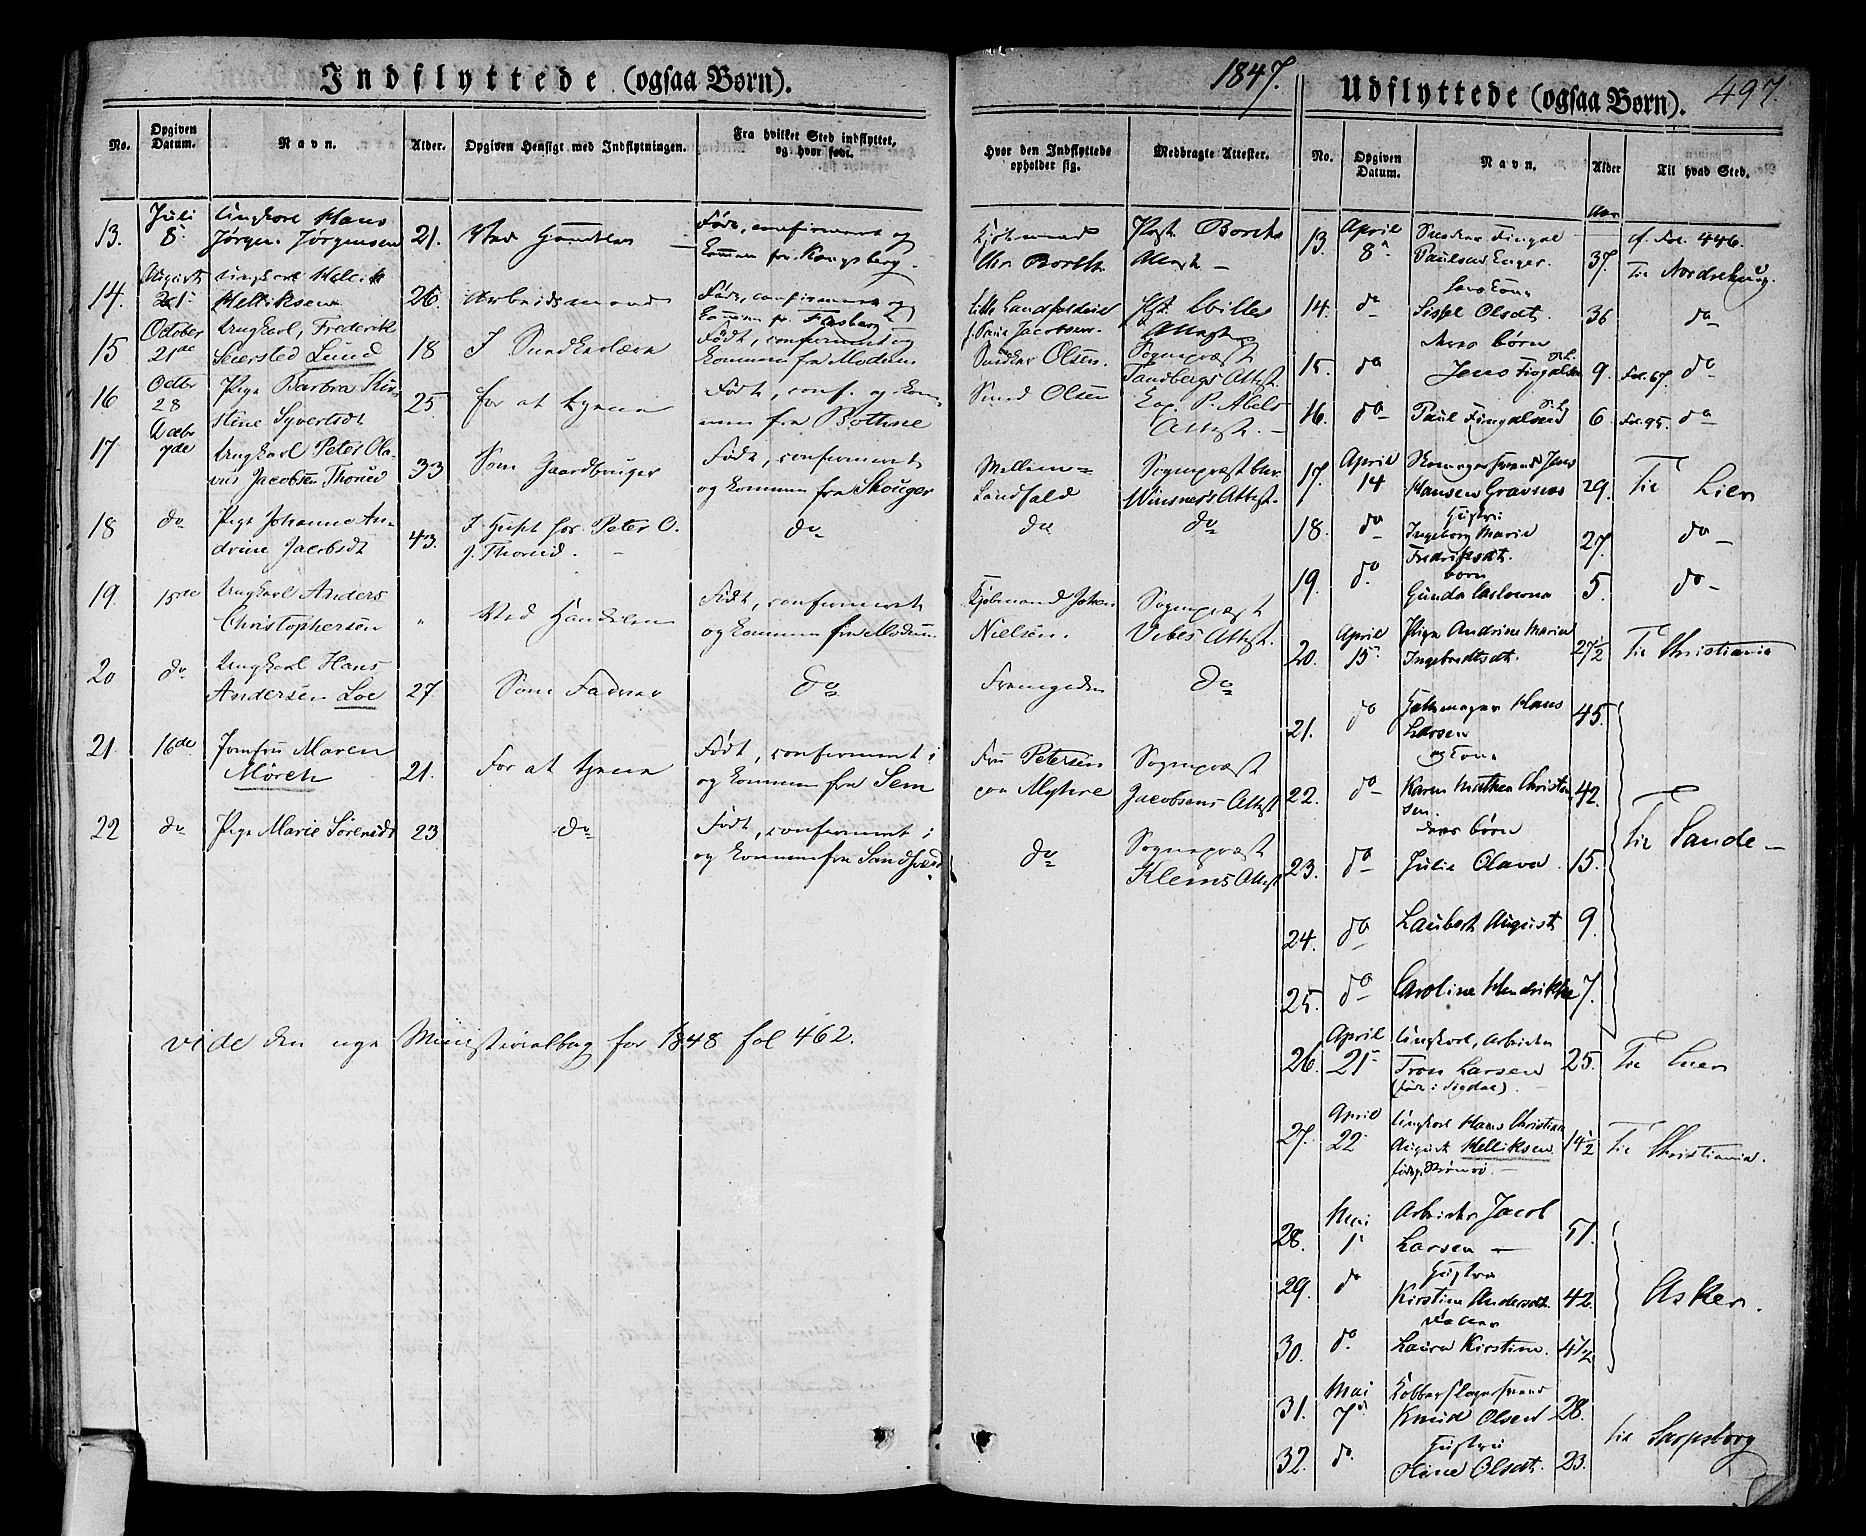 Indflyttede (ogsaa Børn).
No. Opgiven Datum. Navn. Alder. Opgiven Hensigt med Indflytningen. Fra hvilket Sted indflyttet, og hvor født.
Hvor den Indflyttede opholder sig. Medbragte Attester.
13. Juli 8. Ungkarl Hans
Jørgen Jørgensen 21. Ved Handelen Født, confirmeret og
kommen fra Kongsberg.
Kjøbmand
Chr Borch. Præst Borchs
Attest
14. Augusts 21 Ungkarl Hellik
Helliksen 26 Arbeidsmand Født, confirmeret og
kommen fr. Flesberg
Lille Landfaldeid
Jacobsen.
Attest
15 October 21de Ungkarl, Frederik
Seiersted Lund 18 I Snedkerlære Født, confirmeret og
kommen fra Modum
Snedker Olsen. Sognepræst
Tandbergs Attest.
16 Octbr 28 Pige Barbra Kir
stine Syvertsdt 25. for at tjene Født, conf. og kom
men fra Bothne
Smed Olsen Cap. P. Abels
Attest.
17 Octbr 7de Ungkarl Peter Ola-
vus Jacobsen Thorud 33 Som Gaardbruger Født, confirmeret
og kommen fra Skouger
Mellem=
Landfald Sognepræst
Winsnes's Attest.
18 do Pige Johanne An-
drine Jacobsdt 43. I Huset hos Peter O.
J. Thorud. do
do do
19. 15de Ungkarl Anders
Christophersen " Ved Handelen Født, confirmeret
og kommen fra Modum
Kjøbmand Johan
Nielsen. Sognepræst
Vibes Attest.
20 do Ungkarl Hans
Andersen Loe 27. Som do
do
21 16de Jomfru Maren
Mörch 21. For at tjene Født, confirmeret i
og kommen fra Sem
Fru Petersen
paa Myhre Sognepræst
Jacobsens Attest
22 do Pige Marie Sörensdt 23 do Født, confirmeret i
og kommen fra Sandhered
do Sognepræst
Klems Attest
vide den nye Ministerialbog for 1848 fol 462.
1847.
Udflyttede (ogsaa Børn). 497.
No. Opgiven Datum. Navn. Alder Til hvad Sted.
Aar
13. April 8 Snedker Fingal
Paulsen Enger. 37. cf. Fol. 446.
Til Nordrehoug.
14. do
Sissel Olsdt. 36 do
deres børn
15. do Jens Fingalsen 9. Fol. 67. do
16. do Paul Fingalsen 6 Fol. 95. do
17. April 14 Skomagersvend Jens
Hansen Gravnes 29. Til Lier
18. do Hustru
Ingeborg Marie
Fredriksdt. 27. do
19. do. børn
Gunda Caslovna 5. do
20. April 15 Pige Andrine Marie
Ingebretsdt. 27½ Til Christiania
21. do Hattemager Hans
Larsen 45.
og Kone
22. do Karen Mathea Christen
sen 42.
deres børn Til Sande
23. do Julie Olava 15.
24. do Laubert August 9.
25. do Caroline Hendrikke 7.
26. April 21 Ungkarl, Arbeider
Tron Larsen 25. Til Lier
(født i Sigdal).
27. April 22 Ungkarl Hans Christian
August Helliksen 14½ Til Christiania.
28. Mai 1 Arbeider Jacob
Larsen 51.
29. do Hustru
Kirstine Andersdt. 42. Asker.
30. do. Laura Kirstine. 4½
31. Mai 7 Kobberslagersvend
Knud Olsen 28.
32. do Hustru
Oline Olsdt. 23. til Sarpsborg